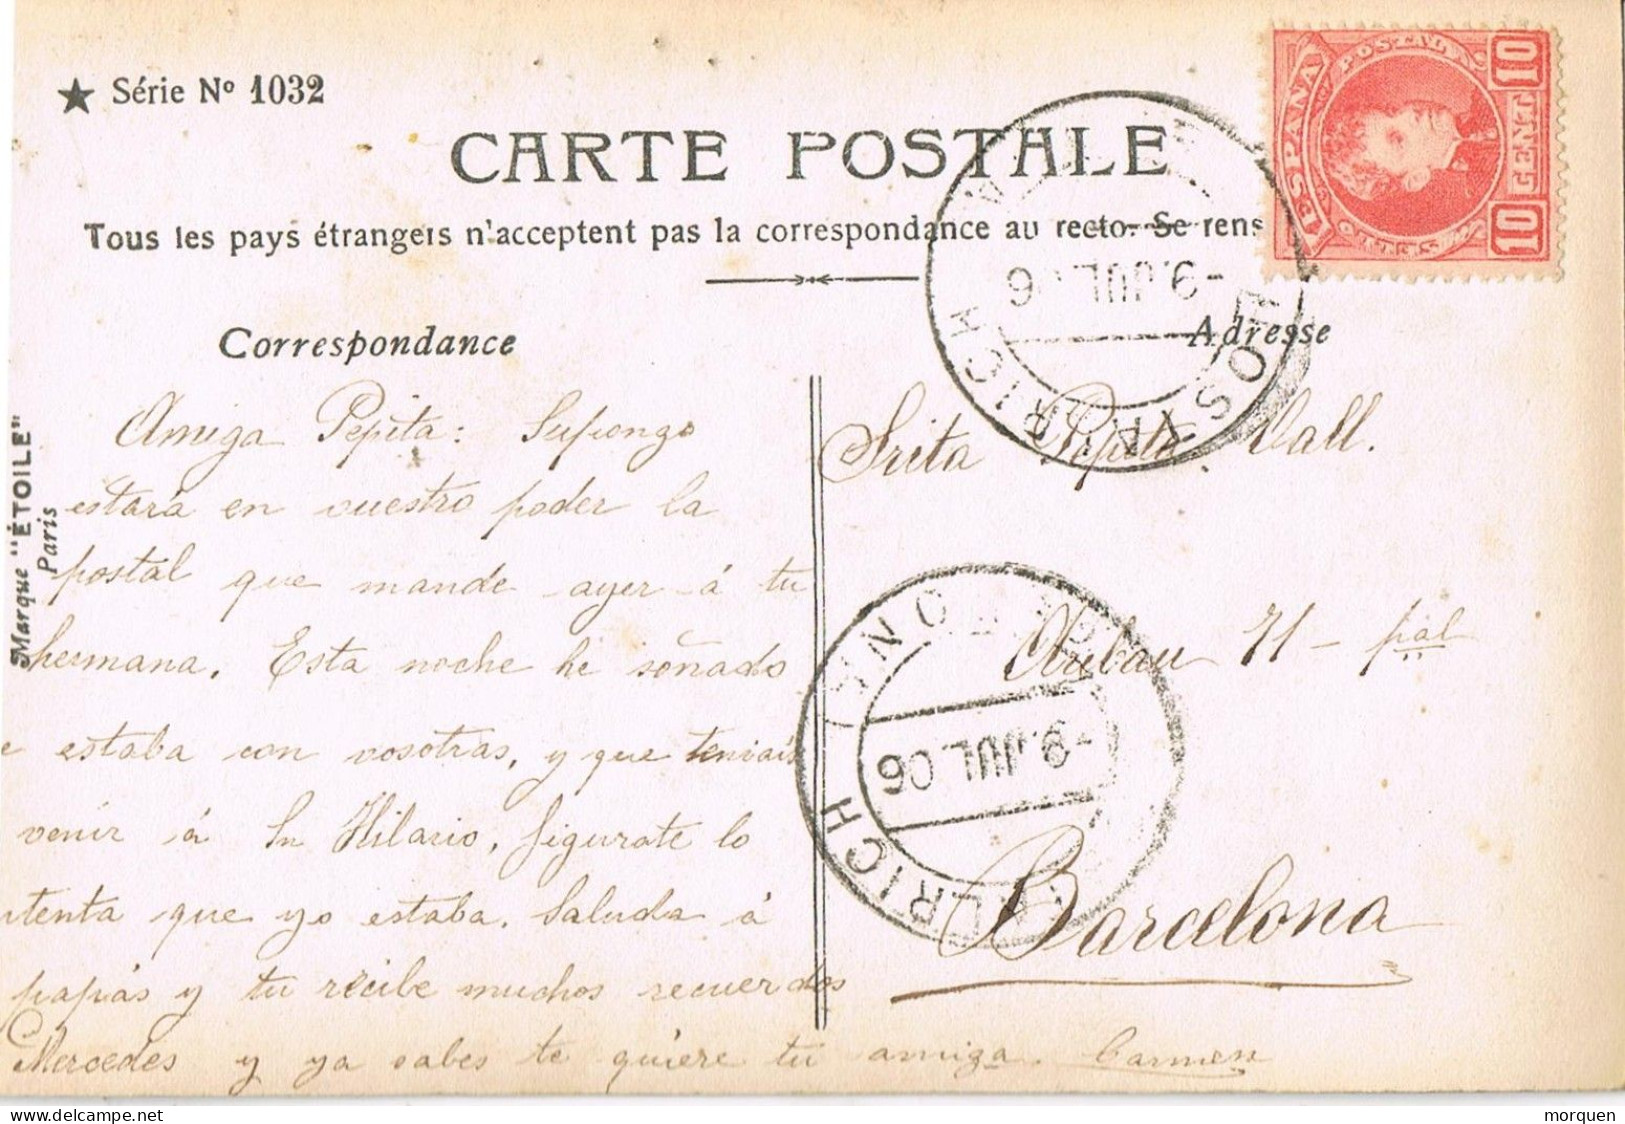 ★ Série Nº 1032
CARTE POSTALE
Tous les pays étrangers n'acceptent pas la correspondance au recto. Se rens
Correspondance
Adresse
Marque "ÉTOILE"
Paris
ESPAÑA
POSTAL
10 CENT 10
-9.JUL.06
-9.JUL.06
Amiga Pepita: Supongo
estará en vuestro poder la
postal que mande ayer á tu
hermana. Esta noche he soñado
e estaba con vosotras, y que teniais
venir á Sn Hilario, figurate lo
ntenta que yo estaba. Saluda á
papás y tu recibe muchos recuerdos
Mercedes y ya sabes te quiere tu amiga Carmen
Srita Pepita Vall.
71 - pal
Barcelona
morquen